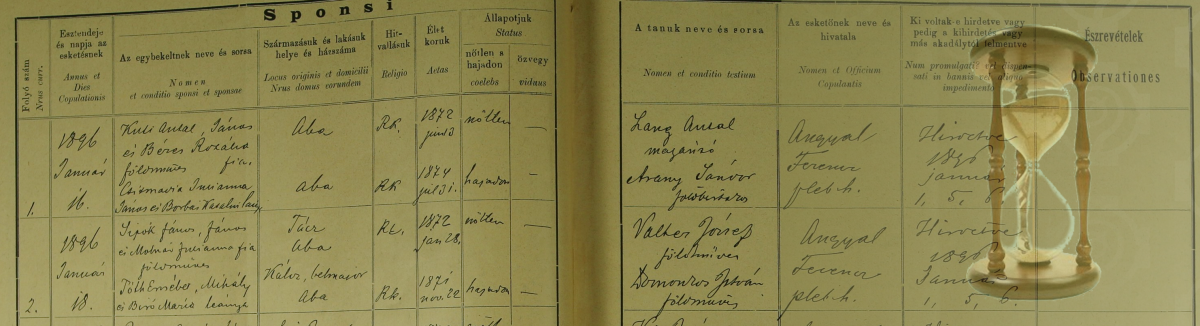 Sponsi
Folyó szám
Nrus curr.
Esztendeje
és napja az
esketésnek
Annus et
Dies
Copulationis
Az egybekeltnek neve és sorsa
Nomen
et conditio sponsi et sponsae
Származásuk és lakásuk
helye és házszáma
Locus originis et domicilii
Nrus domus eorundem
Hit-
vallásuk
Religio
Élet
koruk
Aetas
Állapotjuk
Status
nőtlen
hajadon
coelebs
özvegy
viduus
A tanuk neve és sorsa
Nomen et conditio testium
Az esketőnek neve és
hivatala
Nomen et Officium
Copulantis
Ki voltak-e hirdetve vagy
pedig a kihirdetés vagy
más akadálytól felmentve
Num promulgati et dispen-
sati in bannis vel aliquo
impedimento
Észrevételek
Observationes
1.
1896
Január
16.
Antal, János
és Béres Rozália
fia,
földmüves
Julianna
János és Borbás Katalin
Aba
Aba
Rk.
Rk
1872
1874
júl 31.
nőtlen
hajadon
—
—
Lang Antal
Arany Sándor
Angyal
Ferencz
pleb h.
Hirdetve
1896
január
1, 5, 6.
2.
1896
Január
18.
Sipők János, János
és Molnár Julianna fia
földmüves
Tóth Erzsébet, Mihály
és Biró Mária leánya
Tácz
Aba
Kálóz, belmajor
Aba
Rk.
Rk.
1872
jan 28,
1871
nov. 22
nőtlen
hajadon
—
—
József
földmüves
Domonkos István
földmüves
Angyal
Ferencz
pleb h.
Hirdetve
1896
Január
1, 5, 6.